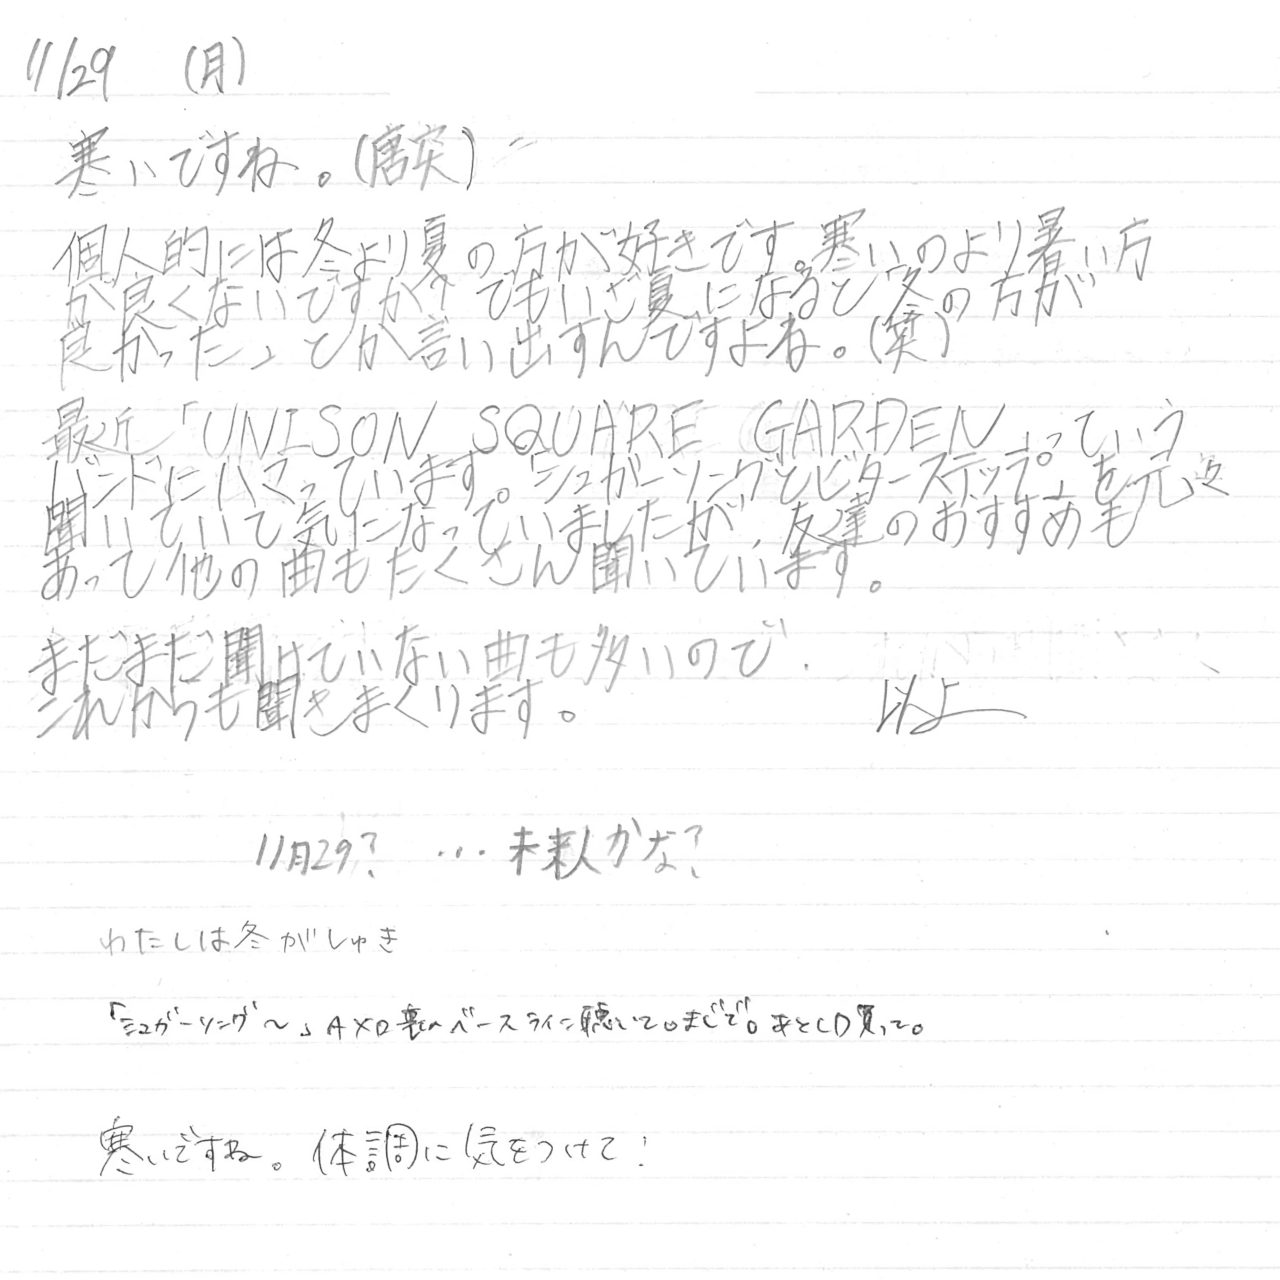 11/29 (月)
寒いですね。(唐突)
個人的には冬より夏の方が好きです。寒いのより暑い方
が良くないですか? でもいざ夏になると「冬の方が
良かった」とか言い出すんですよね。(笑)
最近「UNISON SQUARE GARDEN」っていう
バンドにハマっています。「シュガーソングとビターステップ」を元々
聞いていて気になっていましたが、友達のおすすめも
あって他の曲もたくさん聞いています。
まだまだ聞けていない曲も多いので、
これからも聞きまくります。
以上
11月29? ...未来人かな?
わたしは冬がしゅき
「シュガーソング〜」Aメロ裏のベースライン聴いて。まじで。あとCD買って。
寒いですね。体調に気をつけて!